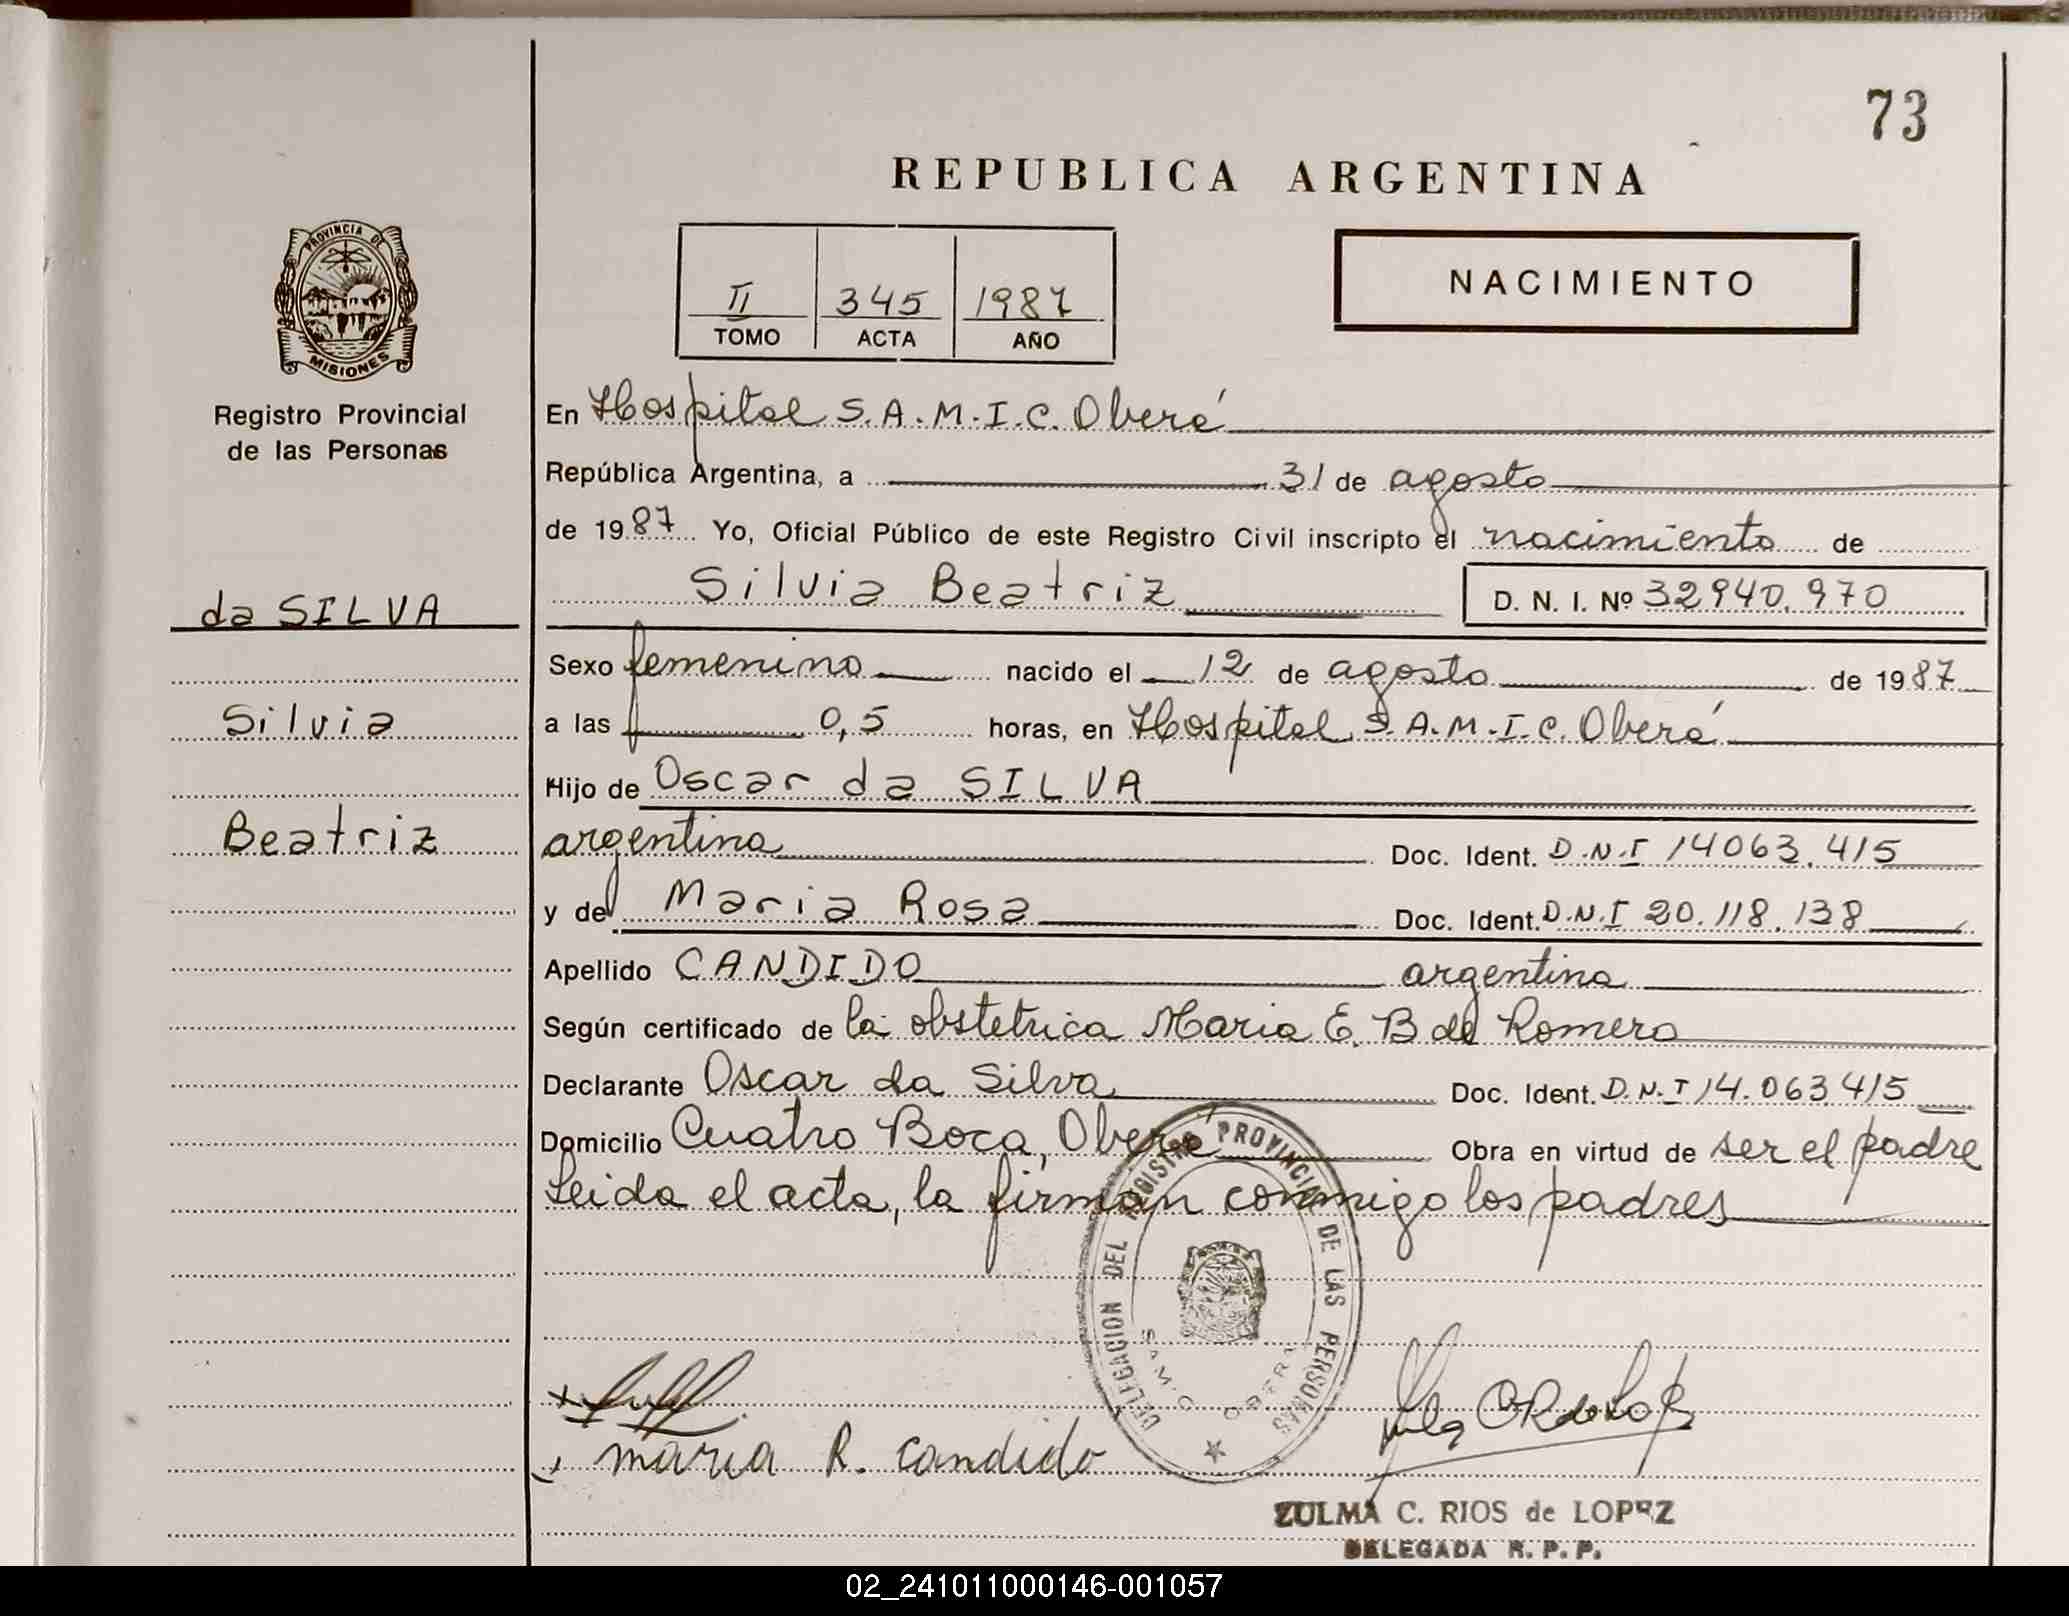 73
REPUBLICA ARGENTINA
PROVINCIA DE
MISIONES
Registro Provincial
de las Personas
II 345 1987
TOMO ACTA AÑO
NACIMIENTO
En Hospital S.A.M.I.C. Oberá
República Argentina, a 31 de agosto
de 1987 Yo, Oficial Público de este Registro Civil inscripto el nacimiento de
Silvia Beatriz D. N. I. Nº 32940.970
da SILVA
Silvia
Beatriz
Sexo femenino nacido el 12 de agosto de 1987
a las 0,5 horas, en Hospital S.A.M.I.C. Oberá
Hijo de Oscar da SILVA
argentina Doc. Ident. D.N.I 14063.415
y de Maria Rosa Doc. Ident. D.N.I 20.118.138
Apellido CANDIDO argentina
Según certificado de la obstetrica Maria E. B de Romero
Declarante Oscar da Silva Doc. Ident. D.N.I 14.063415
Domicilio Cuatro Boca, Oberá Obra en virtud de ser el padre
Leida el acta, la firman conmigo los padres
DELEGACION DEL REGISTRO PROVINCIAL DE LAS PERSONAS
S.A.M.I.C. OBERA
maria R. candido
ZULMA C. RIOS de LOPEZ
DELEGADA R. P. P.
02_241011000146-001057